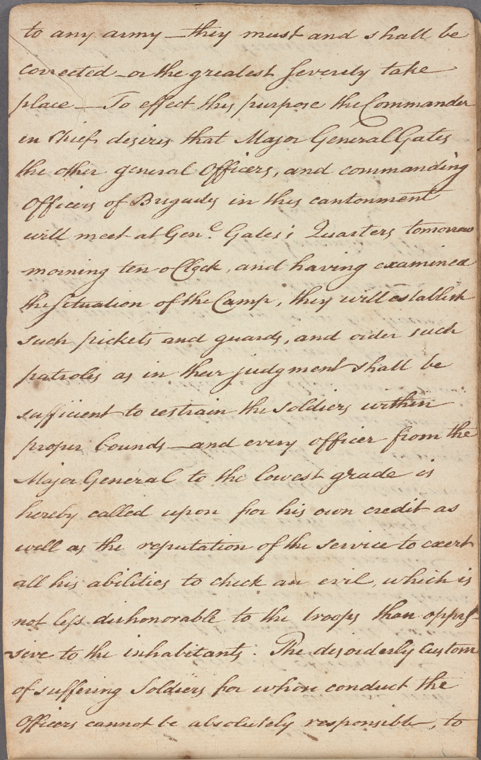 to any army — they must and shall be
corrected — or the greatest severity take
place — To effect this purpose the Commander
in Chief, desires that Major General Gates
the other general Officers, and commanding
Officers of Brigades in this cantonment
will meet at Genl. Gates's Quarters tomorrow
morning ten o Clock, and having examined
the situation of the Camp, they will establish
such pickets and guards, and order such
patroles as in their judgment shall be
sufficient to restrain the soldiers within
proper bounds — and every officer from the
Major General to the lowest grade is
hereby called upon for his own credit as
well as the reputation of the service to exert
all his abilities to check an evil, which is
not less dishonorable to the troops than oppres-
sive to the inhabitants. The disorderly Custom
of suffering Soldiers for whose conduct the
Officers cannot be absolutely responsible, to